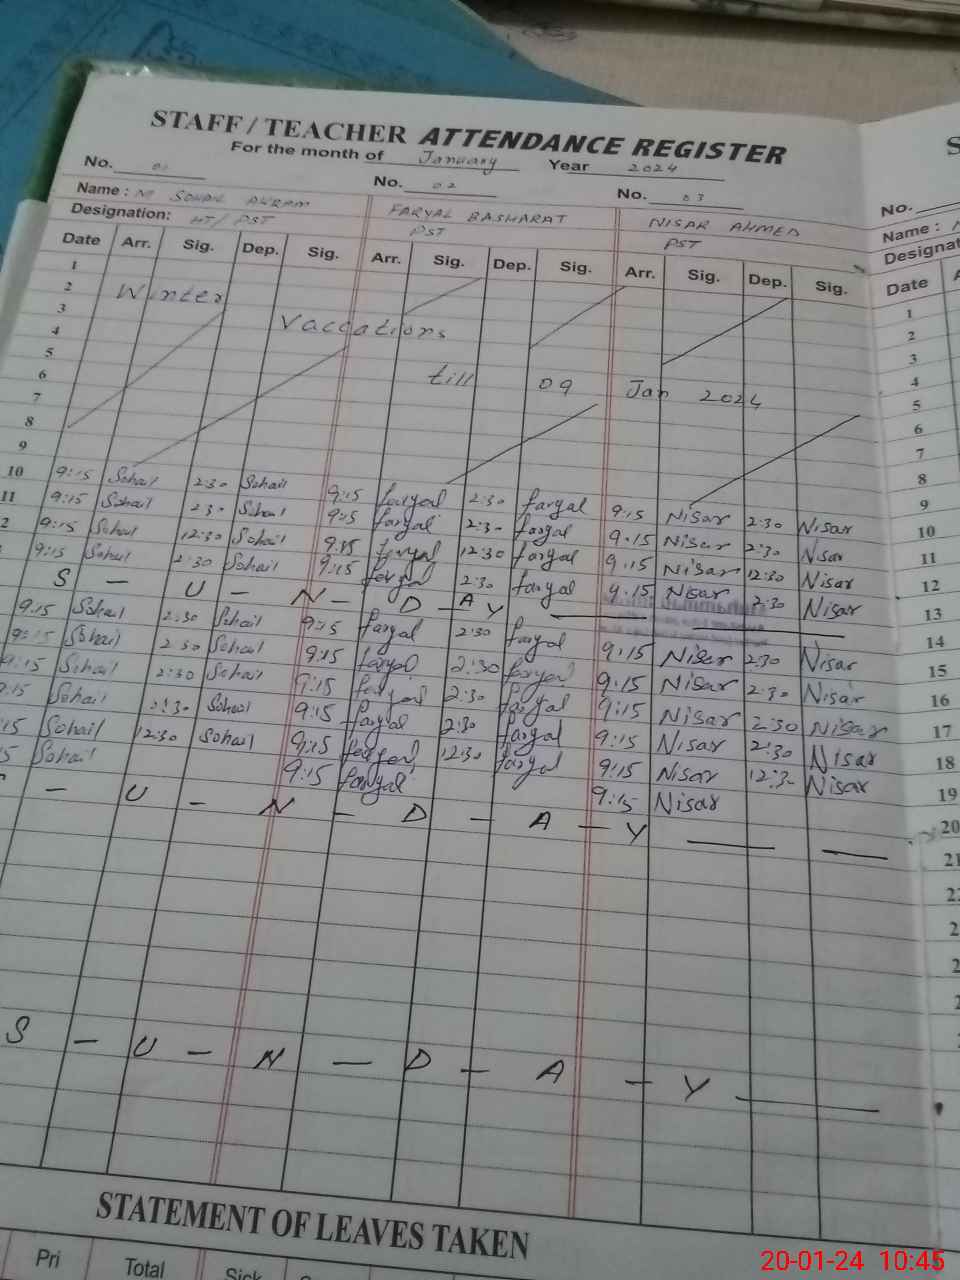 STAFF / TEACHER ATTENDANCE REGISTER
For the month of January Year 2024
No. 01 No. 02 No. 03
Name : M SOHAIL AKRAM FARYAL BASHARAT NISAR AHMED
Designation: HT/ PST PST PST
Date Arr. Sig. Dep. Sig. Arr. Sig. Dep. Sig. Arr. Sig. Dep. Sig.
1
2 Winter
3 Vaccations
4
5
6 till 09 Jan 2024
7
8
9
10 9:15 Sohail 2:30 Sohail 9:15 faryal 2:30 faryal 9:15 Nisar 2:30 Nisar
11 9:15 Sohail 2:30 Sohail 9:15 faryal 2:30 faryal 9:15 Nisar 2:30 Nisar
2 9:15 Sohail 12:30 Sohail 9:15 faryal 12:30 faryal 9:15 Nisar 12:30 Nisar
9:15 Sohail 2:30 Sohail 9:15 faryal 2:30 faryal 9:15 Nisar 2:30 Nisar
S - U - N - D - A Y
9:15 Sohail 2:30 Sohail 9:15 faryal 2:30 faryal 9:15 Nisar 2:30 Nisar
9:15 Sohail 2:30 Sohail 9:15 faryal 2:30 faryal 9:15 Nisar 2:30 Nisar
9:15 Sohail 2:30 Sohail 9:15 faryal 2:30 faryal 9:15 Nisar 2:30 Nisar
9:15 Sohail 2:30 Sohail 9:15 faryal 2:30 faryal 9:15 Nisar 2:30 Nisar
15 Sohail 12:30 Sohail 9:15 faryal 12:30 faryal 9:15 Nisar 12:30 Nisar
5 Sohail 9:15 faryal 9:15 Nisar
- U - N - D - A - Y
S - U - N - D - A - Y
STATEMENT OF LEAVES TAKEN
Pri Total Sick
No.
Name :
Designat
Date
1
2
3
4
5
6
7
8
9
10
11
12
13
14
15
16
17
18
19
20
21
20-01-24 10:45